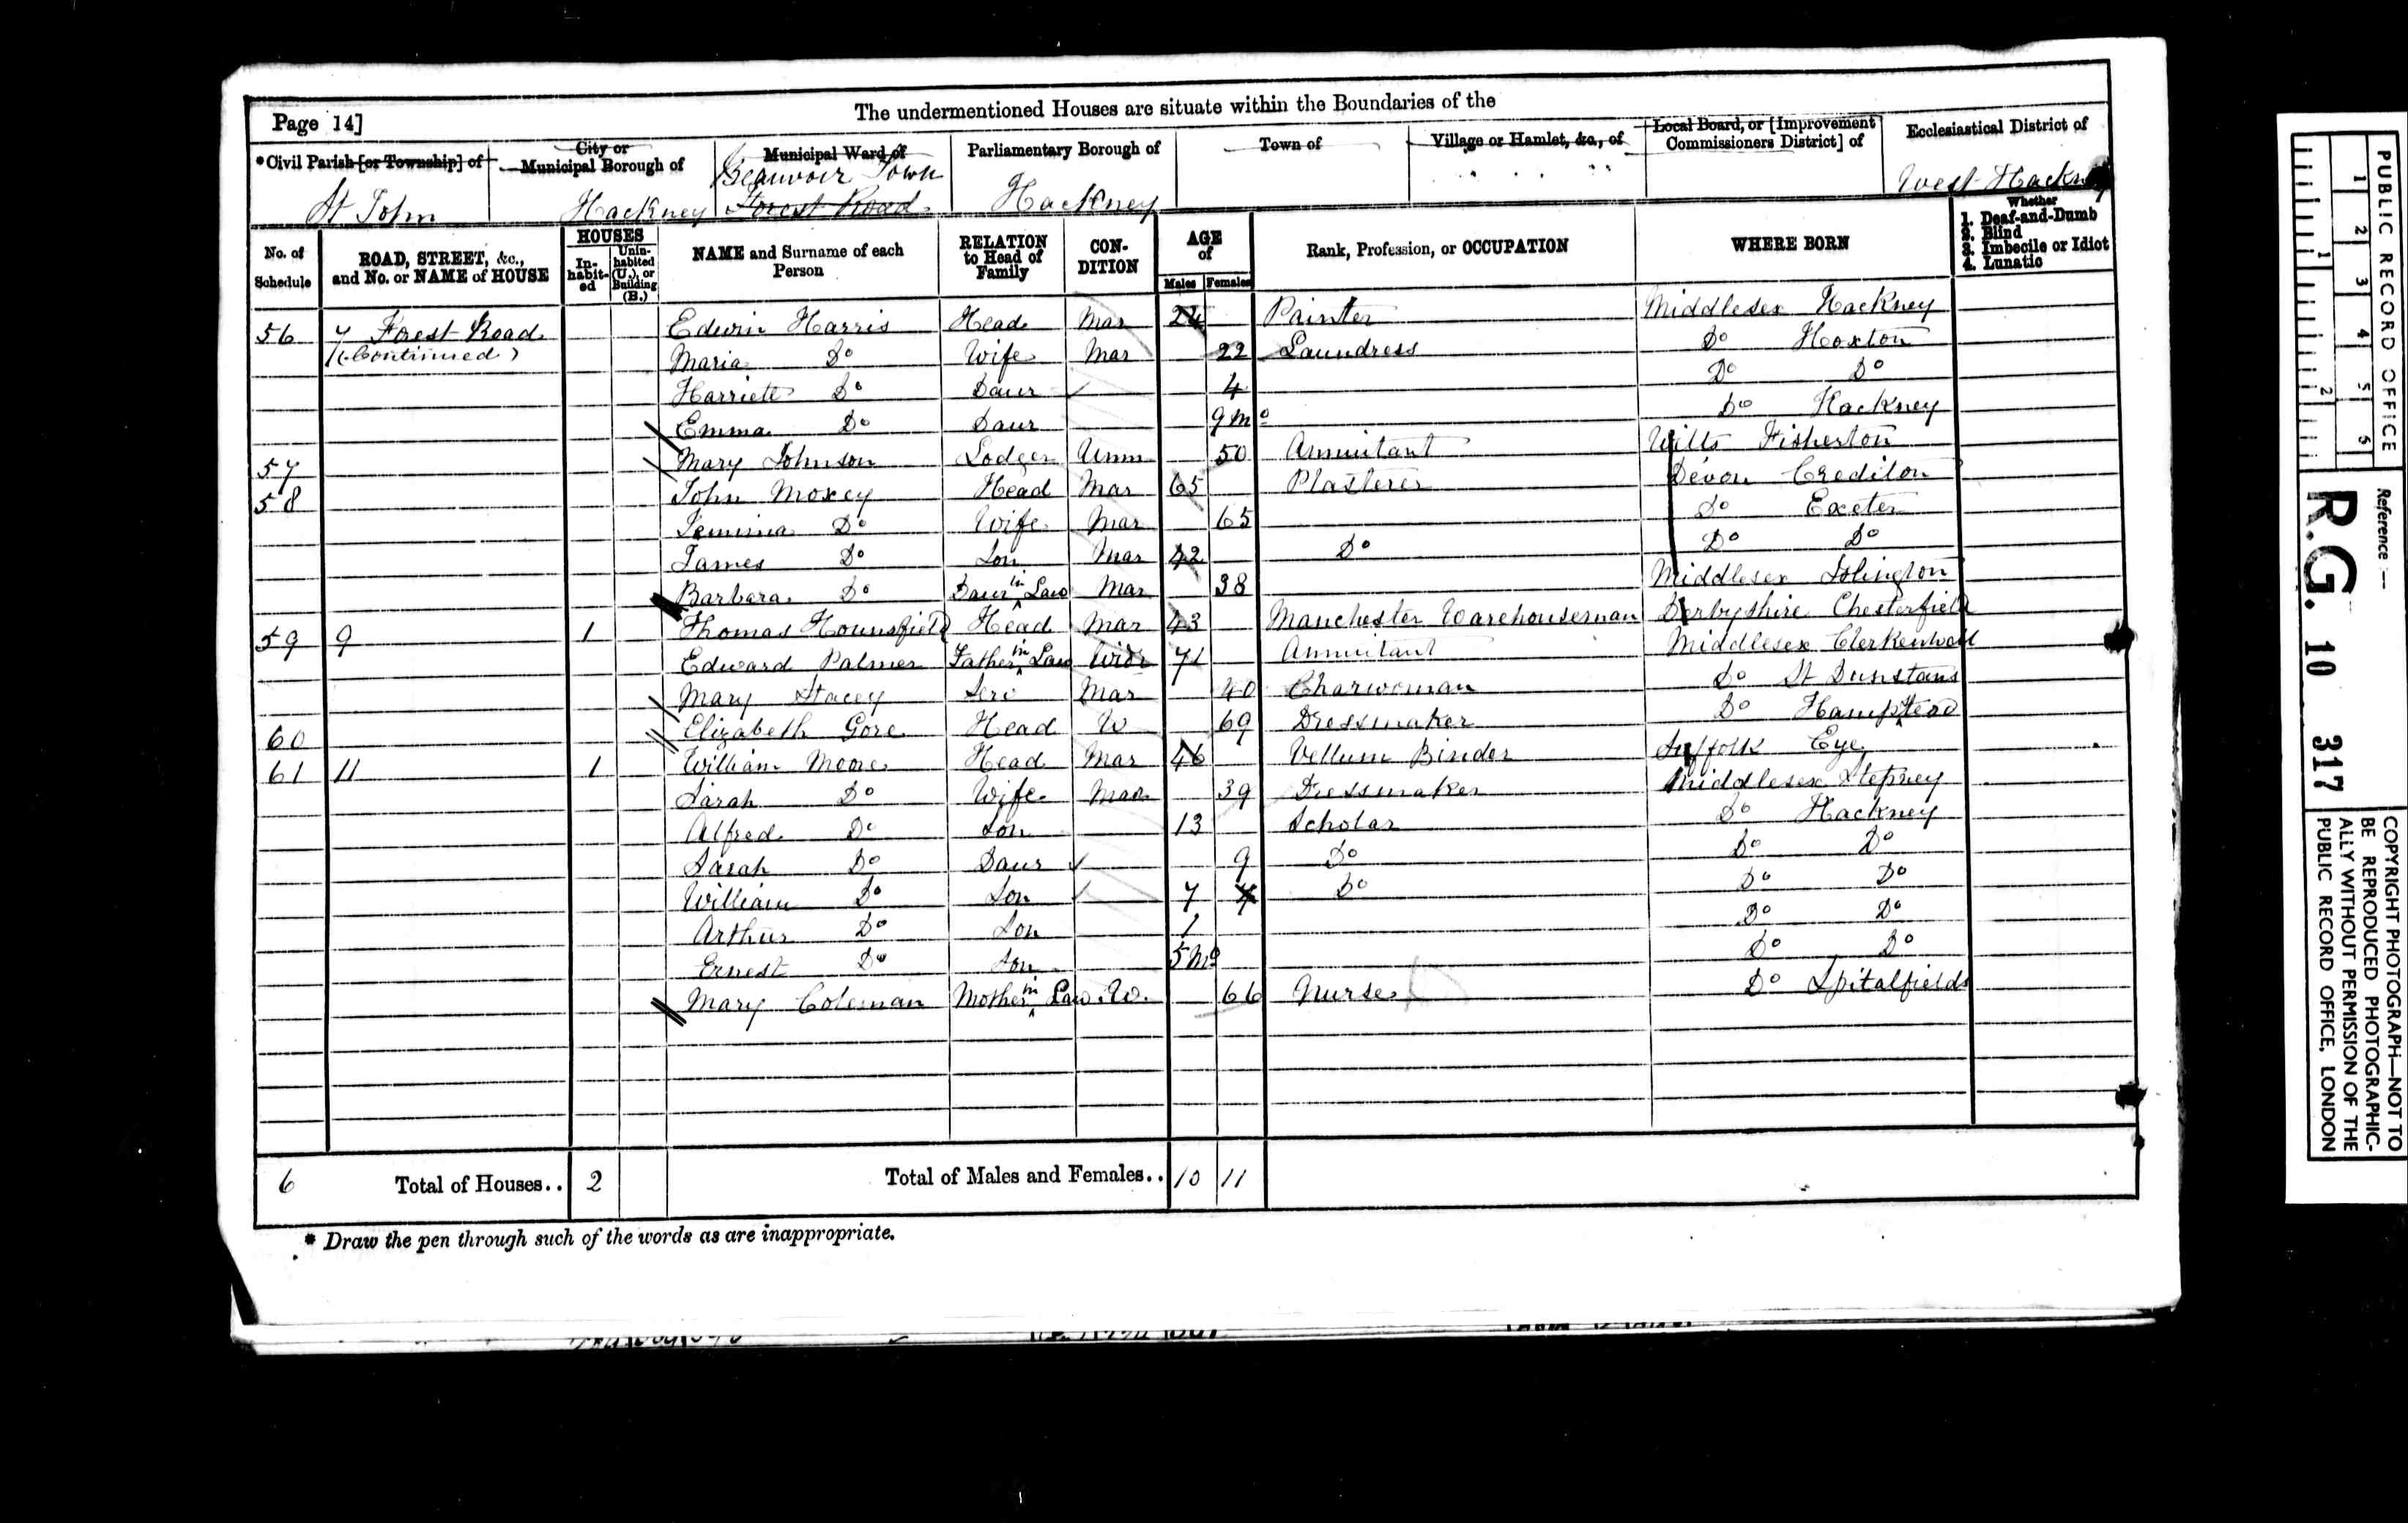 The undermentioned Houses are situate within the Boundaries of the
Page 14]
*Civil Parish [or Township] of
City or Municipal Borough of
Municipal Ward of
Parliamentary Borough of
Town of
Village or Hamlet, &c., of
Local Board, or [Improvement Commissioners District] of
Ecclesiastical District of
St John
Hackney
Beauvoir Town
Forest Road
Hackney
West Hackney
No. of Schedule
ROAD, STREET, &c., and No. or NAME of HOUSE
HOUSES
In-habit-ed
Unin-habited (U.), or Building (B.)
NAME and Surname of each Person
RELATION to Head of Family
CON-DITION
AGE of
Males Females
Rank, Profession, or OCCUPATION
WHERE BORN
Whether
1. Deaf-and-Dumb
2. Blind
3. Imbecile or Idiot
4. Lunatic
56 7 Forest Road Edwin Harris Head Mar 24 Painter Middlesex Hackney
(Continued) Maria Do Wife Mar 22 Laundress Do Hoxton
Harriett Do Daur 4 Do Do
Emma Do Daur 9 Mo Do Hackney
57 Mary Johnson Lodger Unm 50 Annuitant Wilts Fisherton
58 John Moxey Head Mar 65 Plasterer Devon Crediton
Jemima Do Wife Mar 65 Do Exeter
James Do Son Mar 42 Do Do Do
Barbara Do Daur in Law Mar 38 Middlesex Islington
59 9 1 Thomas Hounsfield Head Mar 43 Manchester Warehouseman Derbyshire Chesterfield
Edward Palmer Father in Law Widr 71 Annuitant Middlesex Clerkenwell
Mary Stacey Serv Mar 40 Charwoman Do St Dunstans
60 Elizabeth Gore Head W 69 Dressmaker Do Hampstead
61 11 1 William Moore Head Mar 46 Vellum Binder Suffolk Eye
Sarah Do Wife Mar 39 Dressmaker Middlesex Stepney
Alfred Do Son 13 Scholar Do Hackney
Sarah Do Daur 9 Do Do Do
William Do Son 7 7 Do Do Do
Arthur Do Son 1 Do Do
Ernest Do Son 5 Mo Do Do
Mary Coleman Mother in Law W. 66 Nurse Do Spitalfields
6 Total of Houses.. 2 Total of Males and Females.. 10 11
* Draw the pen through such of the words as are inappropriate.
PUBLIC RECORD OFFICE
1 2 3 4 5 6
1 2
Reference :—
R.G. 10 317
COPYRIGHT PHOTOGRAPH—NOT TO
BE REPRODUCED PHOTOGRAPHIC-
ALLY WITHOUT PERMISSION OF THE
PUBLIC RECORD OFFICE, LONDON